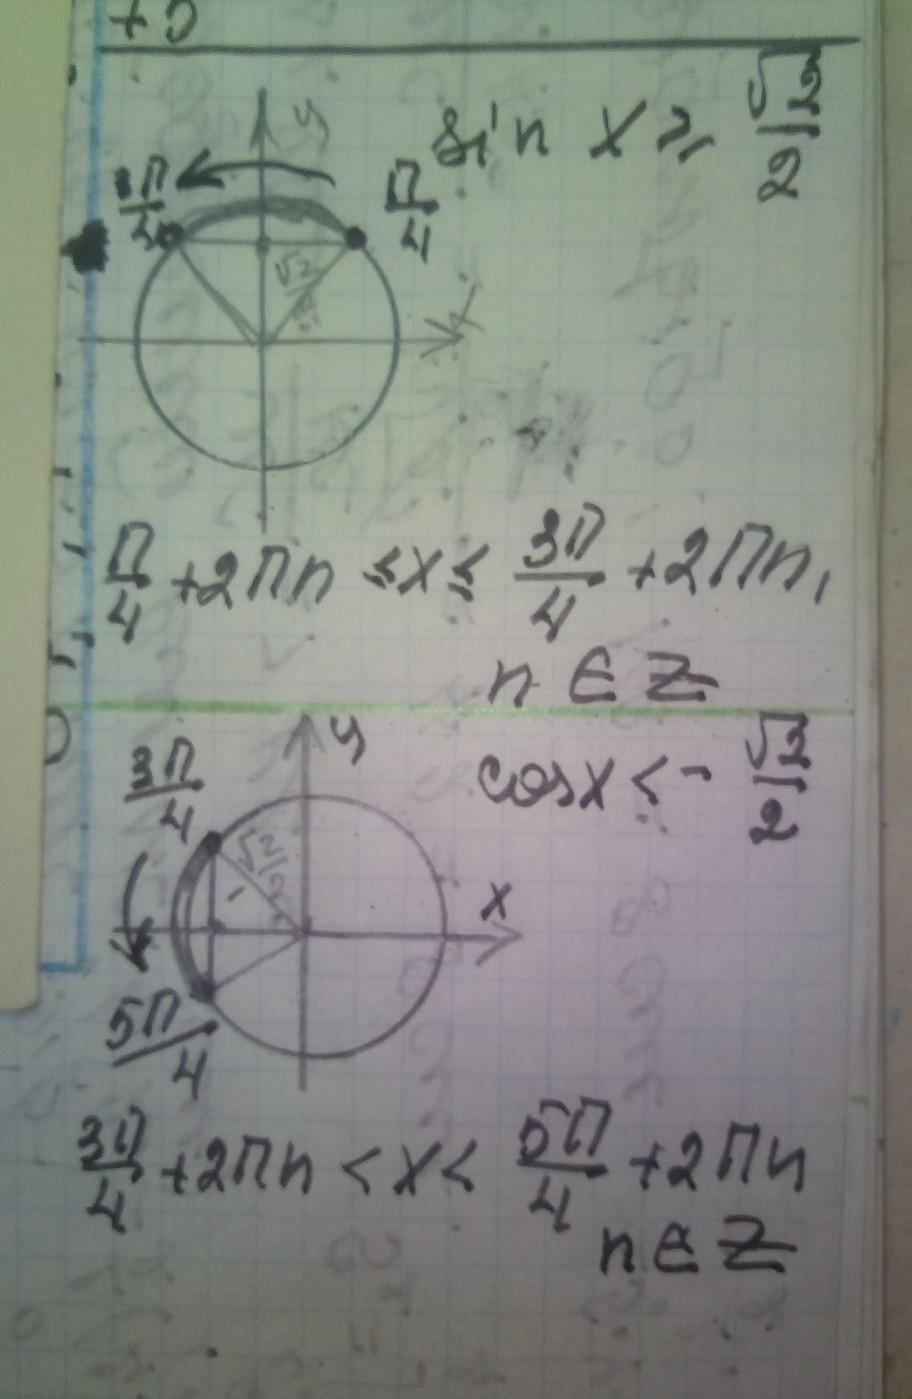 +5
y
sin x ≥ √2/2
3π/4
π/4
√2/2
x
π/4 + 2πn ≤ x ≤ 3π/4 + 2πn,
n ∈ Z
y
3π/4
cos x < - √2/2
√2/2
x
5π/4
3π/4 + 2πn < x < 5π/4 + 2πn
n ∈ Z